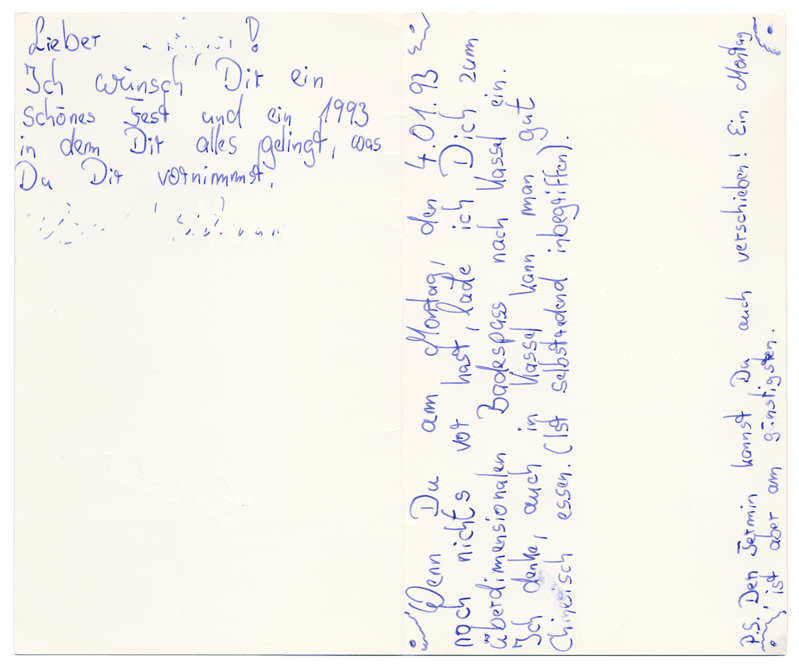 Lieber !
Ich wünsch Dir ein
schönes Fest und ein 1993
in dem Dir alles gelingt, was
Du Dir vornimmst.
Wenn Du am Montag, den 4.01.93
noch nichts vor hast, lade ich Dich zum
überdimensionalen Badespass nach Kassel ein.
Ich denke, auch in Kassel kann man gut
Chineisch essen. (Ist selbstedend inbegriffen).
P.S. Den Termin kannst Du auch verschieben! Ein Montag
ist aber am günstigsten.